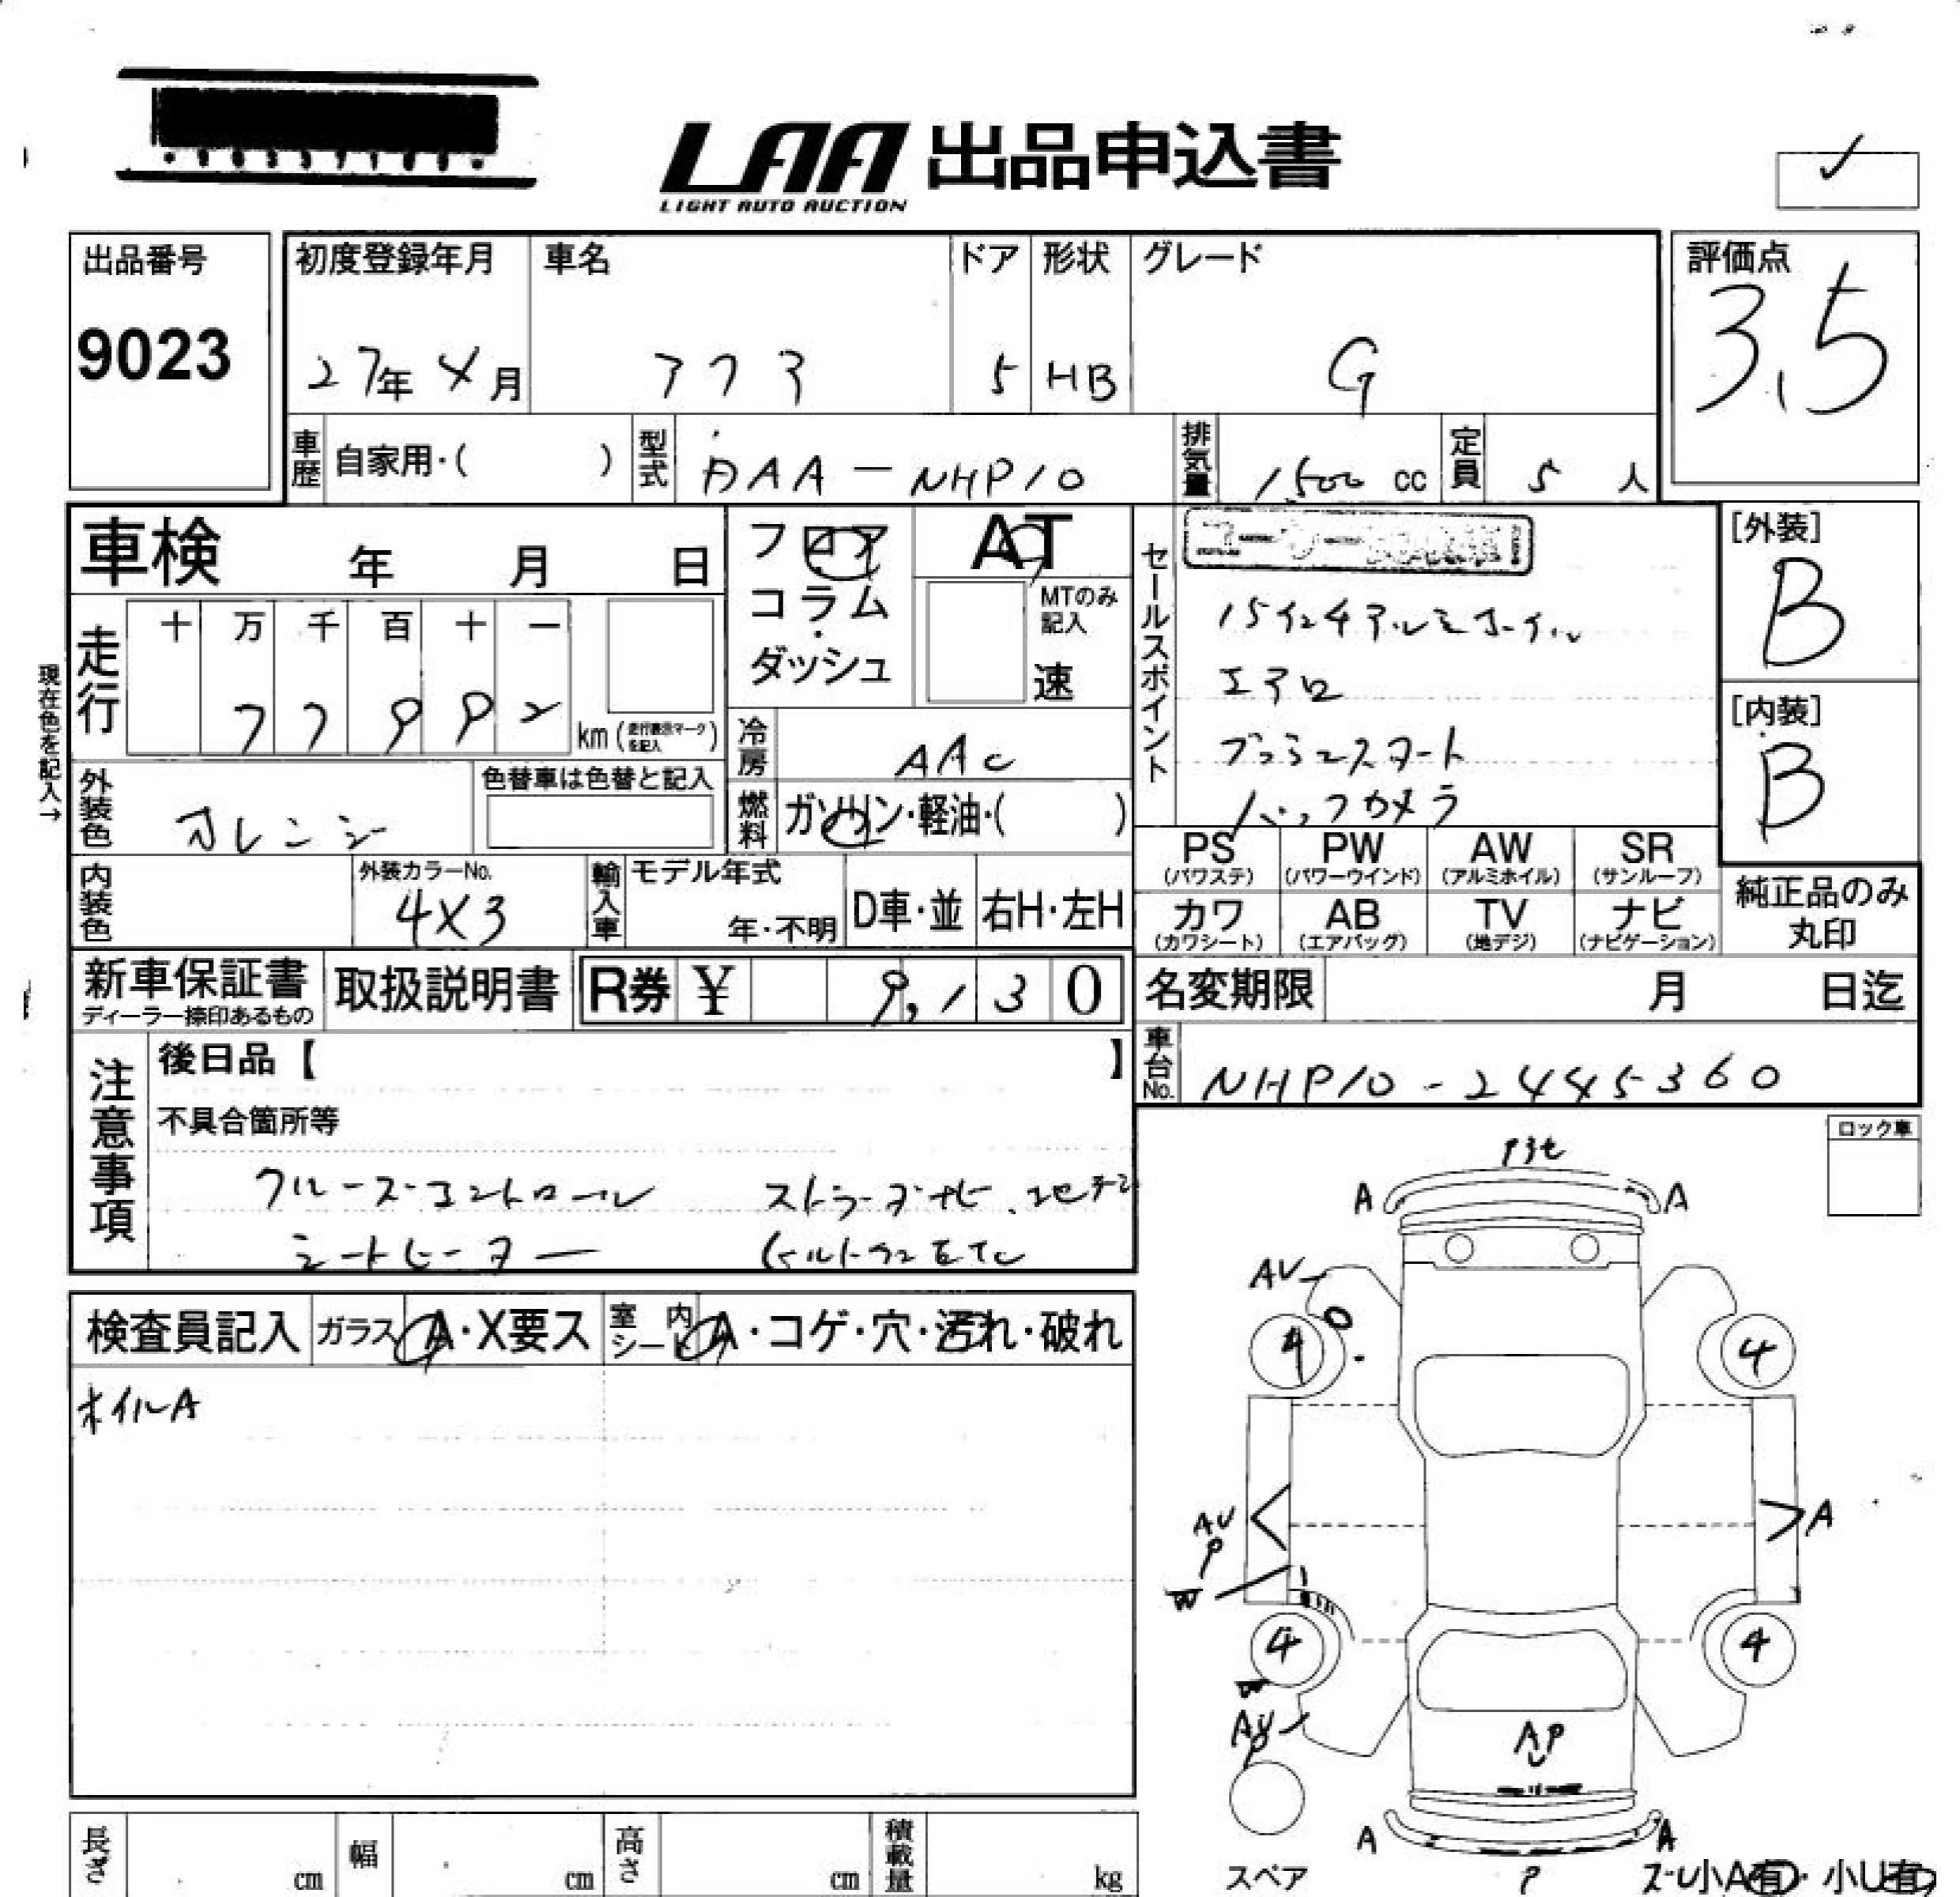 LAA 出品申込書
LIGHT AUTO AUCTION
出品番号
9023
初度登録年月
27年 4月
車名
アクア
ドア
5
形状
HB
グレード
G
評価点
3.5
車歴
自家用・( )
型式
DAA-NHP10
排気量
1500 cc
定員
5 人
車検 年 月 日
フロア
コラム
・
ダッシュ
AT
MTのみ
記入
速
セールスポイント
15インチアルミホイル
エアロ
プッシュスタート
バックカメラ
[外装]
B
[内装]
B
現在色を記入→
走行
十 万 千 百 十 一
7 7 9 9 2
km (走行表示マークを記入)
冷房
AAC
外装色
オレンジ
色替車は色替と記入
燃料
ガソリン・軽油・( )
内装色
外装カラーNo.
4X3
輸入車
モデル年式
年・不明
D車・並
右H・左H
PS
(パワステ)
PW
(パワーウインド)
AW
(アルミホイル)
SR
(サンルーフ)
カワ
(カワシート)
AB
(エアバッグ)
TV
(地デジ)
ナビ
(ナビゲーション)
純正品のみ
丸印
新車保証書
ディーラー捺印あるもの
取扱説明書
R券 ¥ 9,130
名変期限 月 日迄
車台No.
NHP10-2445360
注意事項
後日品【 】
不具合箇所等
クルーズコントロール
シートヒーター
ロック車
検査員記入
ガラス A・X要ス
室内シート A・コゲ・穴・汚れ・破れ
ホイルA
A A
AV
4 4
AU
P
W
A
4 4
AU
P
AP
U
A A
P
スペア
小A有・小U有
長さ cm
幅 cm
高さ cm
積載量 kg